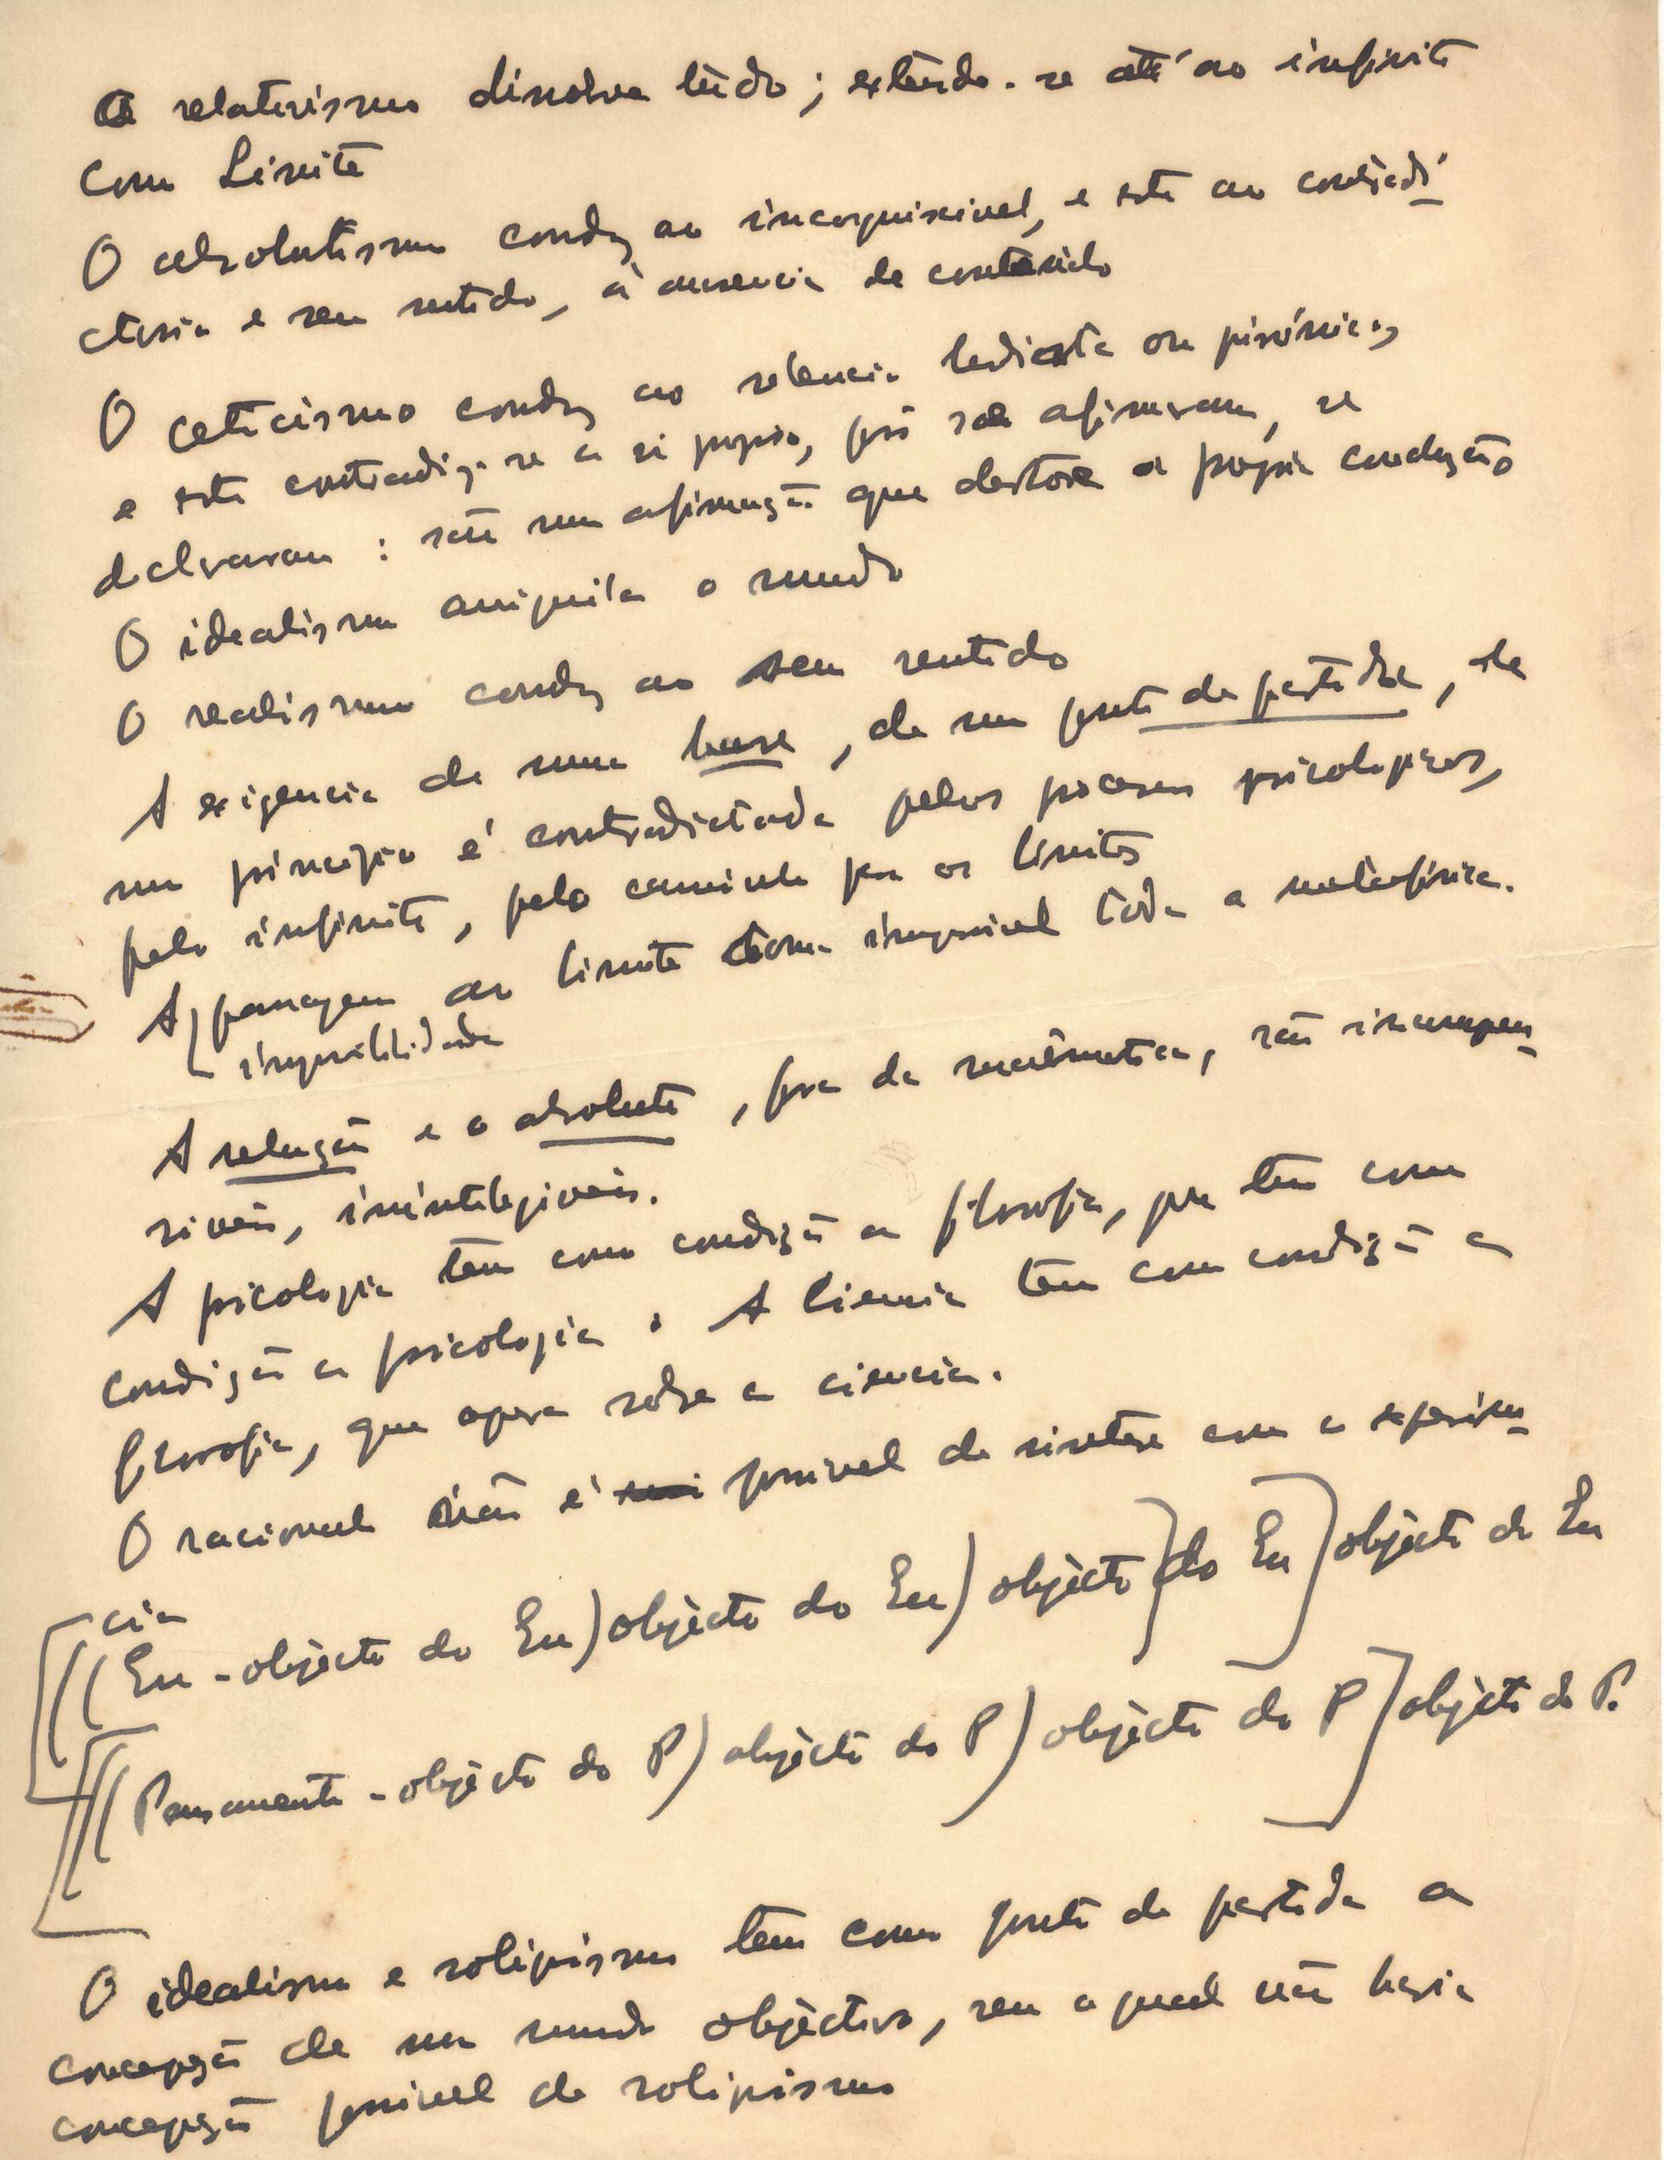 O relativismo dissolve tudo; extende-se até ao infinito
com Limite
O absolutismo conduz ao incogniscivel, e este ao contradi-
ctorio e sem sentido, à ausencia de conteúdo
O ceticismo conduz ao silencio budista ou pirónico,
e este contradiz-se a si proprio, pois se afirmam, se
declaram: são uma afirmação que destroe a propria condução
O idealismo aniquila o mundo
O realismo conduz ao sem sentido
A exigencia de uma base, de um ponto de partida, de
um principio é contradictada pelos processos psicologicos,
pelo infinito, pelo caminho para os limites
A passagem ao limite torna impossivel toda a metafisica.
impossibilidade
A relação e o absoluto, fora da matemática, são incompen-
siveis, inintelegiveis.
A psicologia tem como condição a filosofia, que tem como
condição a psicologia. A Ciencia tem como condição a
filosofia, que opera sobre a ciencia.
O racional não é possivel de sintese com a experien-
cia
[((Eu - objécto do Eu) objécto do Eu) objécto do Eu] objécto do Eu
[((Pensamento - objécto do P) objécto do P) objécto do P] objécto do P.
O idealismo e solipismo tem como ponto de partida a
concepção de um mundo objéctivo, sem o qual não havia
concepção possivel de solipismo